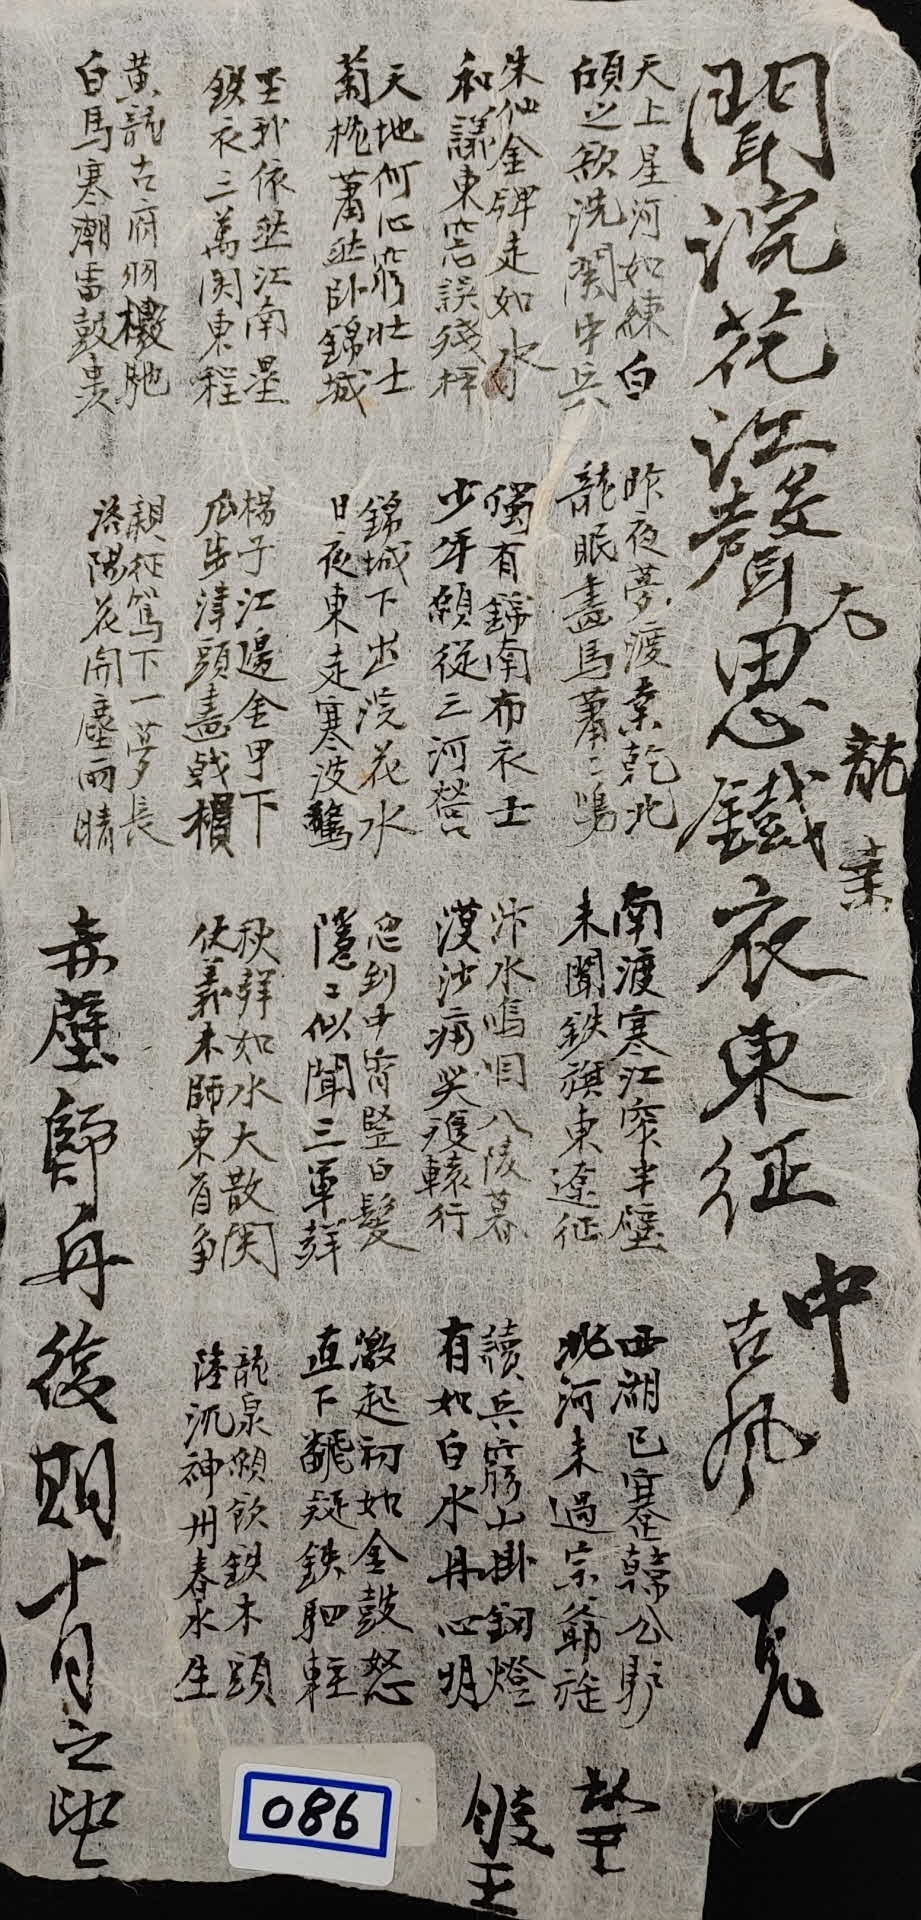 聞浣花江聲思鐵衣東征
古風
龍
中
天上星河如練白
傾之欲洗関中兵
昨夜夢渡桒乾北
龍眠畫馬蕭〻鳴
南渡寒江窄半壁
未聞鉄旗東遼征
西湖已蹇韓公馿
北河未過宗爺旌
朱仙金牌走如水
和議東窓誤殘枰
獨有錦南布衣士
少年願從三河營
汴水嗚咽八陵暮
漠沙痛哭雙轅行
讀兵窮山掛釼燈
有如白水丹心明
天地何心窮壮士
枕蕭然卧錦城
錦城下出浣花水
日夜東走寒波驚
忽到中宵豎白髮
隱〻似聞三軍聲
激起初如金鼓怒
直下飜疑鉄駟輕
我依然江南星
鉄衣三萬関東程
楊子江邊金甲下
瓜步津頭畫戟横
秋聲如水大散関
仗義木師東首爭
龍泉願飲鉄木頭
陸沉神州春水生
黄龍古府羽檄馳
白馬寒潮雷鼓轟
親征篤下一夢長
洛陽花開塵雨晴
赤壁歸舟後期十月之望
086